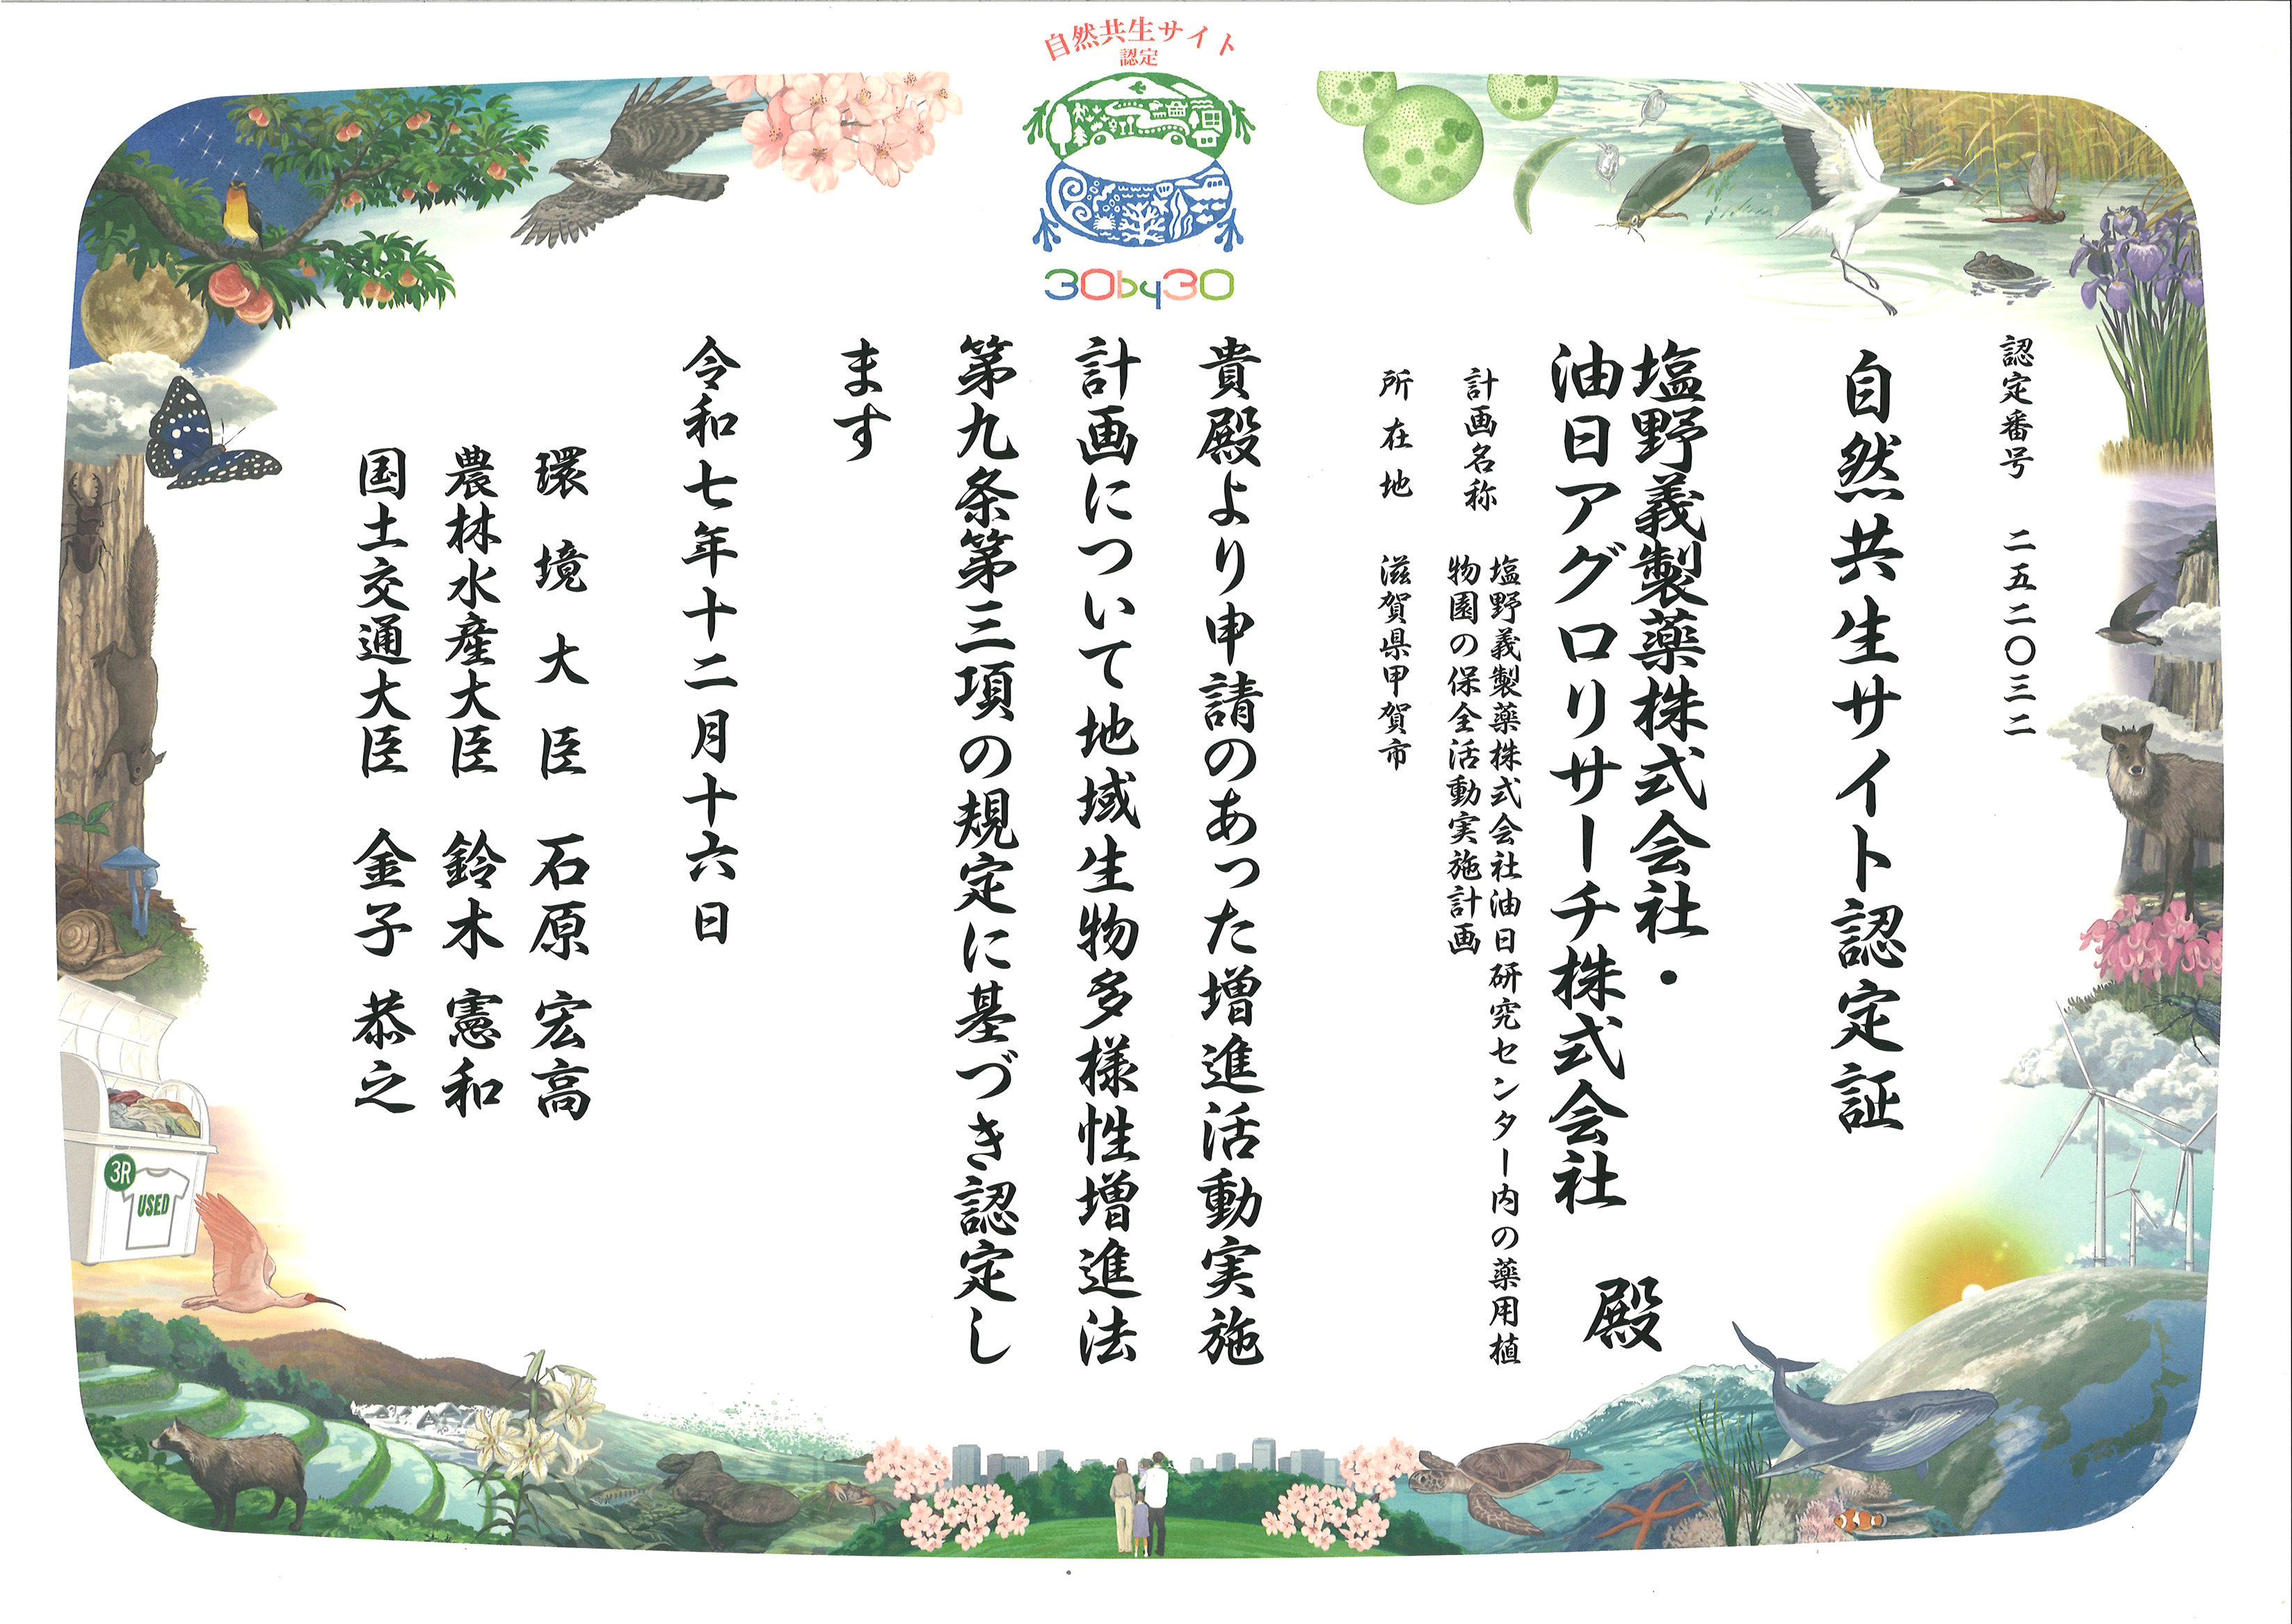 自然共生サイト
認定
30by30
認定番号 二五二〇三二
自然共生サイト認定証
塩野義製薬株式会社・
油日アグロリサーチ株式会社 殿
計画名称 塩野義製薬株式会社油日研究センター内の薬用植
物園の保全活動実施計画
所在地 滋賀県甲賀市
貴殿より申請のあった増進活動実施
計画について地域生物多様性増進法
第九条第三項の規定に基づき認定し
ます
令和七年十二月十六日
環境大臣 石原 宏高
農林水産大臣 鈴木 憲和
国土交通大臣 金子 恭之
3R
USED